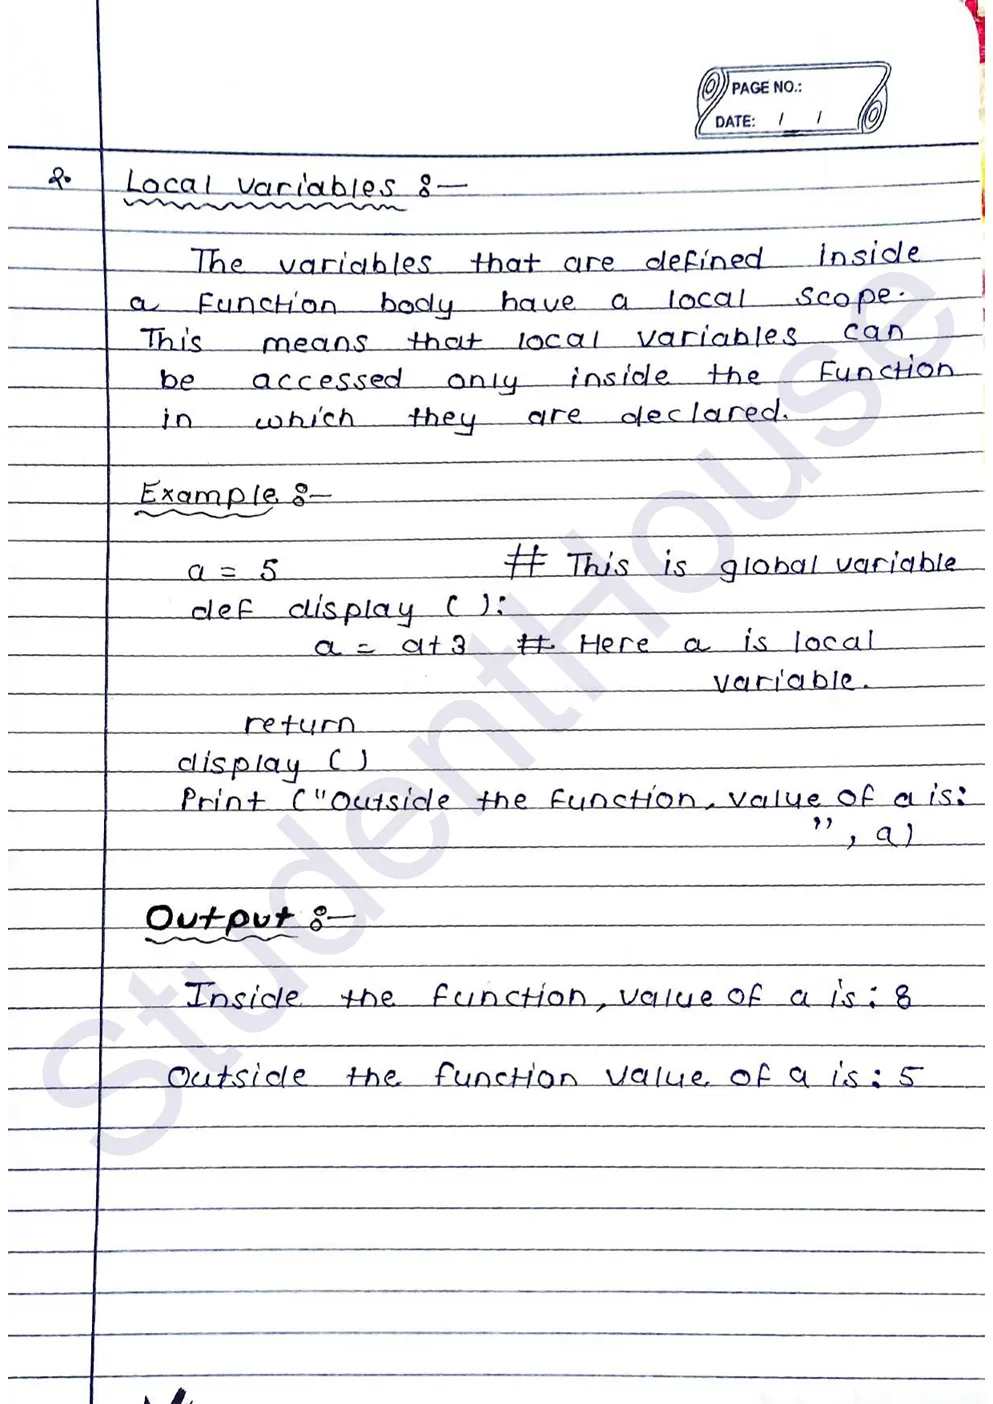 PAGE NO.:
DATE: / /
2. Local variables :-
The variables that are defined inside
a function body have a local scope.
This means that local variables can
be accessed only inside the function
in which they are declared.
Example :-
a = 5 # This is global variable
def display ( ):
a = a+3 # Here a is local
variable.
return
display ( )
Print ("Outside the function, value of a is:
", a)
Output :-
Inside the function, value of a is : 8
Outside the function value of a is : 5
StudentHouse